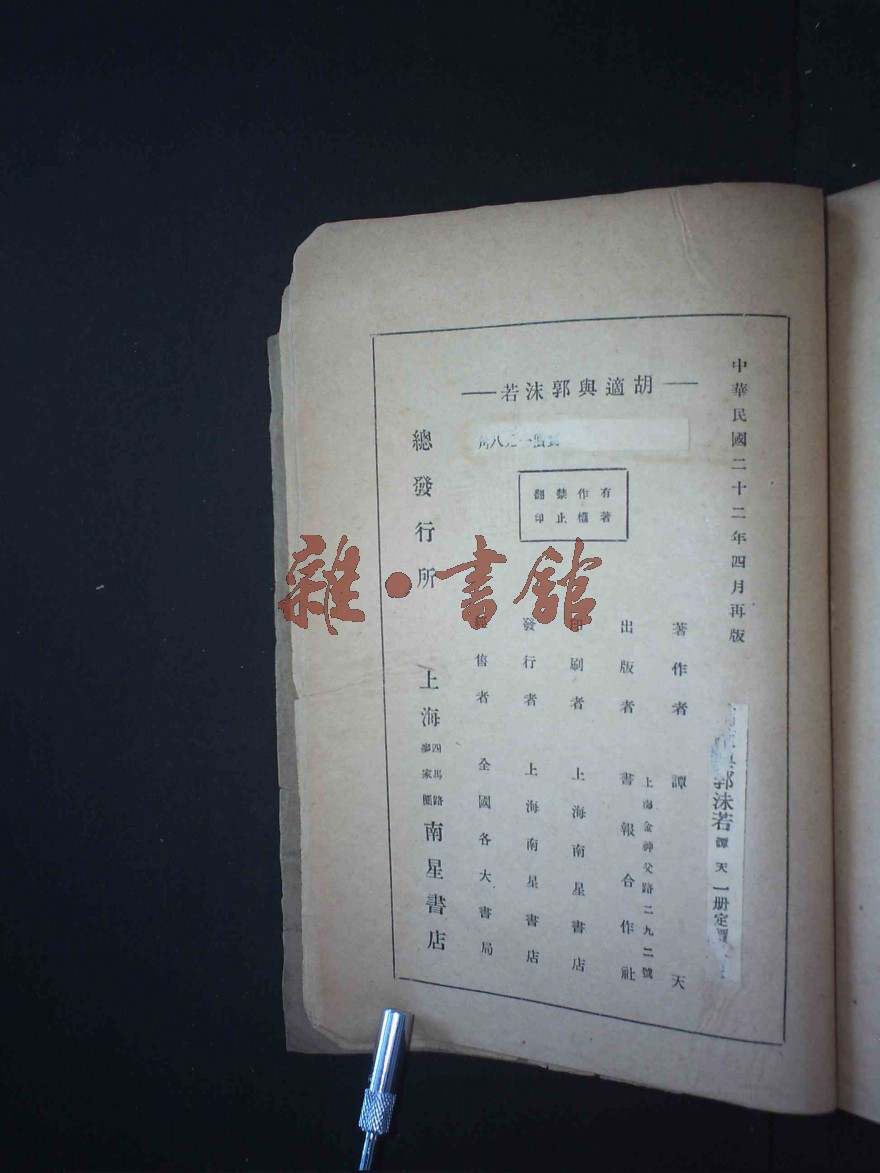 中華民國二十二年四月再版
——胡適與郭沫若——
實價一元八角
有著作權禁止翻印
著作者 譚天
出版者 書報合作社
上海金神父路二九二號
印刷者 上海南星書店
發行者 上海南星書店
經售者 全國各大書局
總發行所 上海四馬路麥家圈南星書店
與郭沫若 譚天 一册定價
雜·書舘